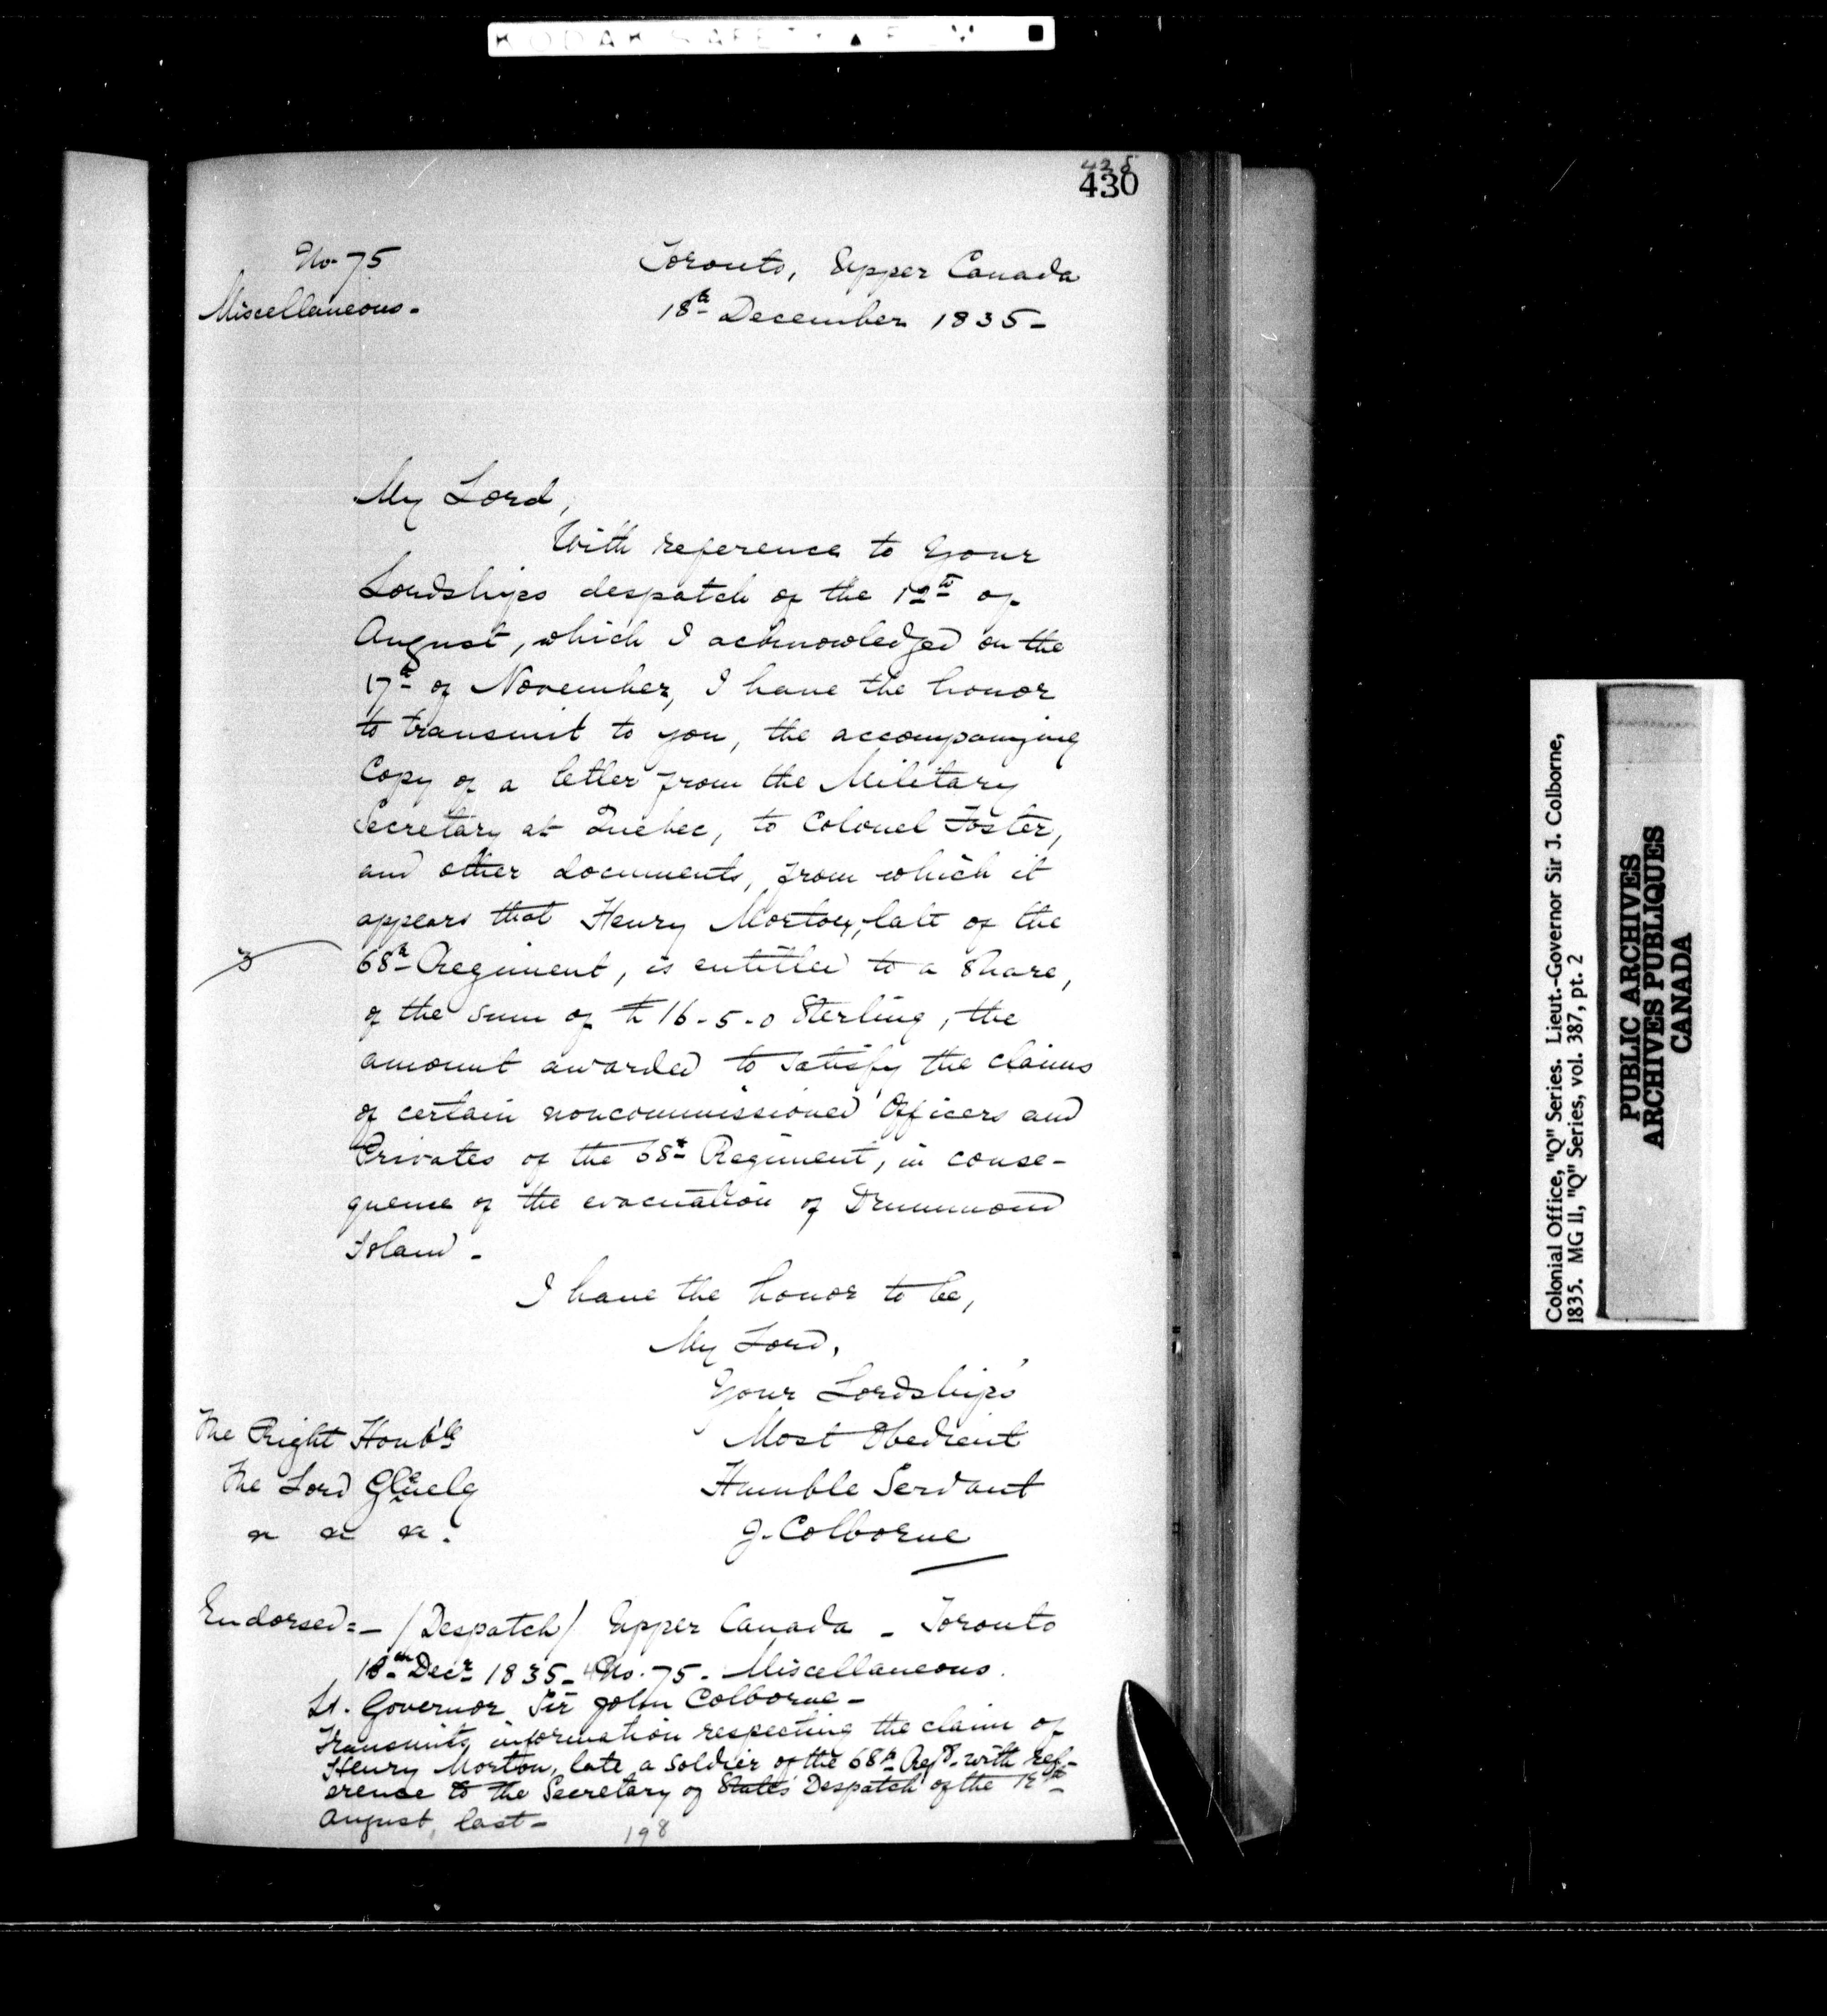 KODAK SAFETY FILM
428
430
No. 75
Miscellaneous.
Toronto, Upper Canada
18th December 1835-
My Lord,
With reference to Your
Lordships despatch of the 12th of
August, which I acknowledged on the
17th of November, I have the honor
to transmit to you, the accompanying
Copy of a letter from the Military
Secretary at Quebec, to Colonel Foster,
and other documents, from which it
appears that Henry Morton, late of the
3
68th Regiment, is entitled to a share,
of the sum of £16-5-0 Sterling, the
amount awarded to satisfy the claims
of certain noncommissioned Officers and
Privates of the 68th Regiment, in conse-
quence of the evacuation of Drummond
Island-
I have the honor to be,
My Lord,
Your Lordships'
Most Obedient
Humble Servant
J. Colborne
The Right Honble
The Lord Glenelg
Endorsed:- /Despatch/ Upper Canada - Toronto
18th Decr 1835- No. 75- Miscellaneous.
Lt. Governor Sir John Colborne-
Transmits information respecting the claim of
Henry Morton, late a soldier of the 68th Regt. with ref-
erence to the Secretary of State's Despatch of the 12th
August, last-
198
Colonial Office, "Q" Series. Lieut.-Governor Sir J. Colborne,
1835. MG 11, "Q" Series, vol. 387, pt. 2
PUBLIC ARCHIVES
ARCHIVES PUBLIQUES
CANADA